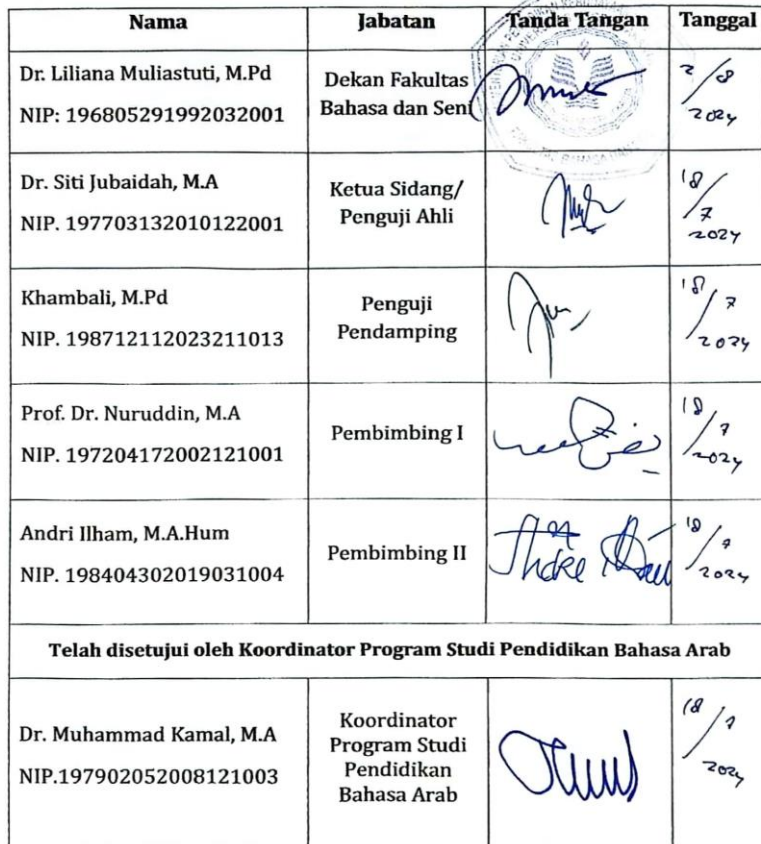 Nama
Jabatan
Tanda Tangan
Tanggal
Dr. Liliana Muliastuti, M.Pd
NIP: 196805291992032001
Dekan Fakultas
Bahasa dan Seni
2/8
2024
Dr. Siti Jubaidah, M.A
NIP. 197703132010122001
Ketua Sidang/
Penguji Ahli
18/
7
2024
Khambali, M.Pd
NIP. 198712112023211013
Penguji
Pendamping
18/7
2024
Prof. Dr. Nuruddin, M.A
NIP. 197204172002121001
Pembimbing I
18/7
2024
Andri Ilham, M.A.Hum
NIP. 198404302019031004
Pembimbing II
18/7
2024
Telah disetujui oleh Koordinator Program Studi Pendidikan Bahasa Arab
Dr. Muhammad Kamal, M.A
NIP.197902052008121003
Koordinator
Program Studi
Pendidikan
Bahasa Arab
18/7
2024